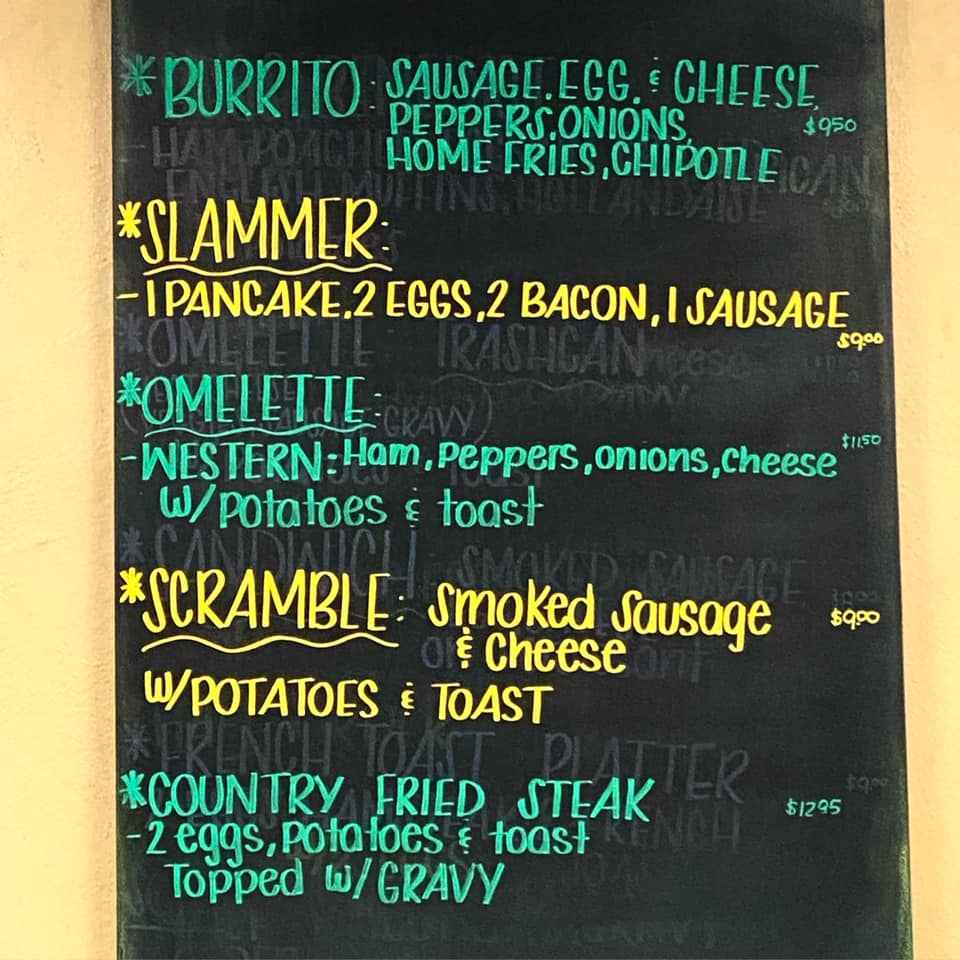 * BURRITO: SAUSAGE, EGG, & CHEESE,
PEPPERS, ONIONS, $950
HOME FRIES, CHIPOTLE
*SLAMMER:
-1 PANCAKE, 2 EGGS, 2 BACON, 1 SAUSAGE
$9.00
*OMELETTE:
-WESTERN: Ham, Peppers, onions, cheese $11.50
w/potatoes & toast
*SCRAMBLE: Smoked Sausage $9.00
& Cheese
W/POTATOES & TOAST
*COUNTRY FRIED STEAK $1295
-2 eggs, potatoes & toast
Topped w/ GRAVY